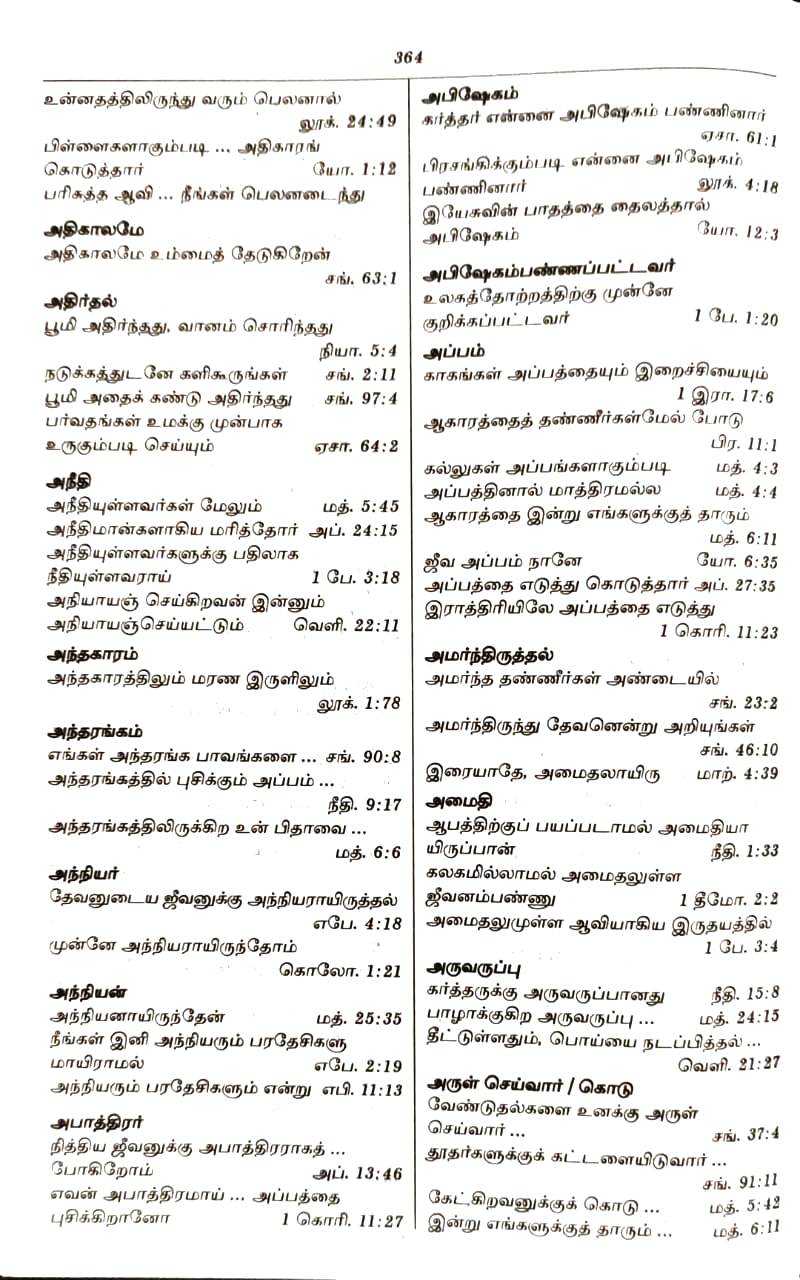 364
உன்னதத்திலிருந்து வரும் பெலனால்
லூக். 24:49
பிள்ளைகளாகும்படி ... அதிகாரங்
கொடுத்தார் யோ. 1:12
பரிசுத்த ஆவி ... நீங்கள் பெலனடைந்து
அதிகாலமே
அதிகாலமே உம்மைத் தேடுகிறேன்
சங். 63:1
அதிர்தல்
பூமி அதிர்ந்தது, வானம் சொரிந்தது
நியா. 5:4
நடுக்கத்துடனே களிகூருங்கள் சங். 2:11
பூமி அதைக் கண்டு அதிர்ந்தது சங். 97:4
பர்வதங்கள் உமக்கு முன்பாக
உருகும்படி செய்யும் ஏசா. 64:2
அநீதி
அநீதியுள்ளவர்கள் மேலும் மத். 5:45
அநீதிமான்களாகிய மரித்தோர் அப். 24:15
அநீதியுள்ளவர்களுக்கு பதிலாக
நீதியுள்ளவராய் 1 பே. 3:18
அநியாயஞ் செய்கிறவன் இன்னும்
அநியாயஞ்செய்யட்டும் வெளி. 22:11
அந்தகாரம்
அந்தகாரத்திலும் மரண இருளிலும்
லூக். 1:78
அந்தரங்கம்
எங்கள் அந்தரங்க பாவங்களை ... சங். 90:8
அந்தரங்கத்தில் புசிக்கும் அப்பம் ...
நீதி. 9:17
அந்தரங்கத்திலிருக்கிற உன் பிதாவை ...
மத். 6:6
அந்நியர்
தேவனுடைய ஜீவனுக்கு அந்நியராயிருத்தல்
எபே. 4:18
முன்னே அந்நியராயிருந்தோம்
கொலோ. 1:21
அந்நியன்
அந்நியனாயிருந்தேன் மத். 25:35
நீங்கள் இனி அந்நியரும் பரதேசிகளு
மாயிராமல் எபே. 2:19
அந்நியரும் பரதேசிகளும் என்று எபி. 11:13
அபாத்திரர்
நித்திய ஜீவனுக்கு அபாத்திரராகத் ...
போகிறோம் அப். 13:46
எவன் அபாத்திரமாய் ... அப்பத்தை
புசிக்கிறானோ 1 கொரி. 11:27
அபிஷேகம்
கர்த்தர் என்னை அபிஷேகம் பண்ணினார்
ஏசா. 61:1
பிரசங்கிக்கும்படி என்னை அபிஷேகம்
பண்ணினார் லூக். 4:18
இயேசுவின் பாதத்தை தைலத்தால்
அபிஷேகம் யோ. 12:3
அபிஷேகம்பண்ணப்பட்டவர்
உலகத்தோற்றத்திற்கு முன்னே
குறிக்கப்பட்டவர் 1 பே. 1:20
அப்பம்
காகங்கள் அப்பத்தையும் இறைச்சியையும்
1 இரா. 17:6
ஆகாரத்தைத் தண்ணீர்கள்மேல் போடு
பிர. 11:1
கல்லுகள் அப்பங்களாகும்படி மத். 4:3
அப்பத்தினால் மாத்திரமல்ல மத். 4:4
ஆகாரத்தை இன்று எங்களுக்குத் தாரும்
மத். 6:11
ஜீவ அப்பம் நானே யோ. 6:35
அப்பத்தை எடுத்து கொடுத்தார் அப். 27:35
இராத்திரியிலே அப்பத்தை எடுத்து
1 கொரி. 11:23
அமர்ந்திருத்தல்
அமர்ந்த தண்ணீர்கள் அண்டையில்
சங். 23:2
அமர்ந்திருந்து தேவனென்று அறியுங்கள்
சங். 46:10
இரையாதே, அமைதலாயிரு மாற். 4:39
அமைதி
ஆபத்திற்குப் பயப்படாமல் அமைதியா
யிருப்பான் நீதி. 1:33
கலகமில்லாமல் அமைதலுள்ள
ஜீவனம்பண்ணு 1 தீமோ. 2:2
அமைதலுமுள்ள ஆவியாகிய இருதயத்தில்
1 பே. 3:4
அருவருப்பு
கர்த்தருக்கு அருவருப்பானது நீதி. 15:8
பாழாக்குகிற அருவருப்பு ... மத். 24:15
தீட்டுள்ளதும், பொய்யை நடப்பித்தல் ...
வெளி. 21:27
அருள் செய்வார் / கொடு
வேண்டுதல்களை உனக்கு அருள்
செய்வார் ... சங். 37:4
தூதர்களுக்குக் கட்டளையிடுவார் ...
சங். 91:11
கேட்கிறவனுக்குக் கொடு ... மத். 5:42
இன்று எங்களுக்குத் தாரும் ... மத். 6:11